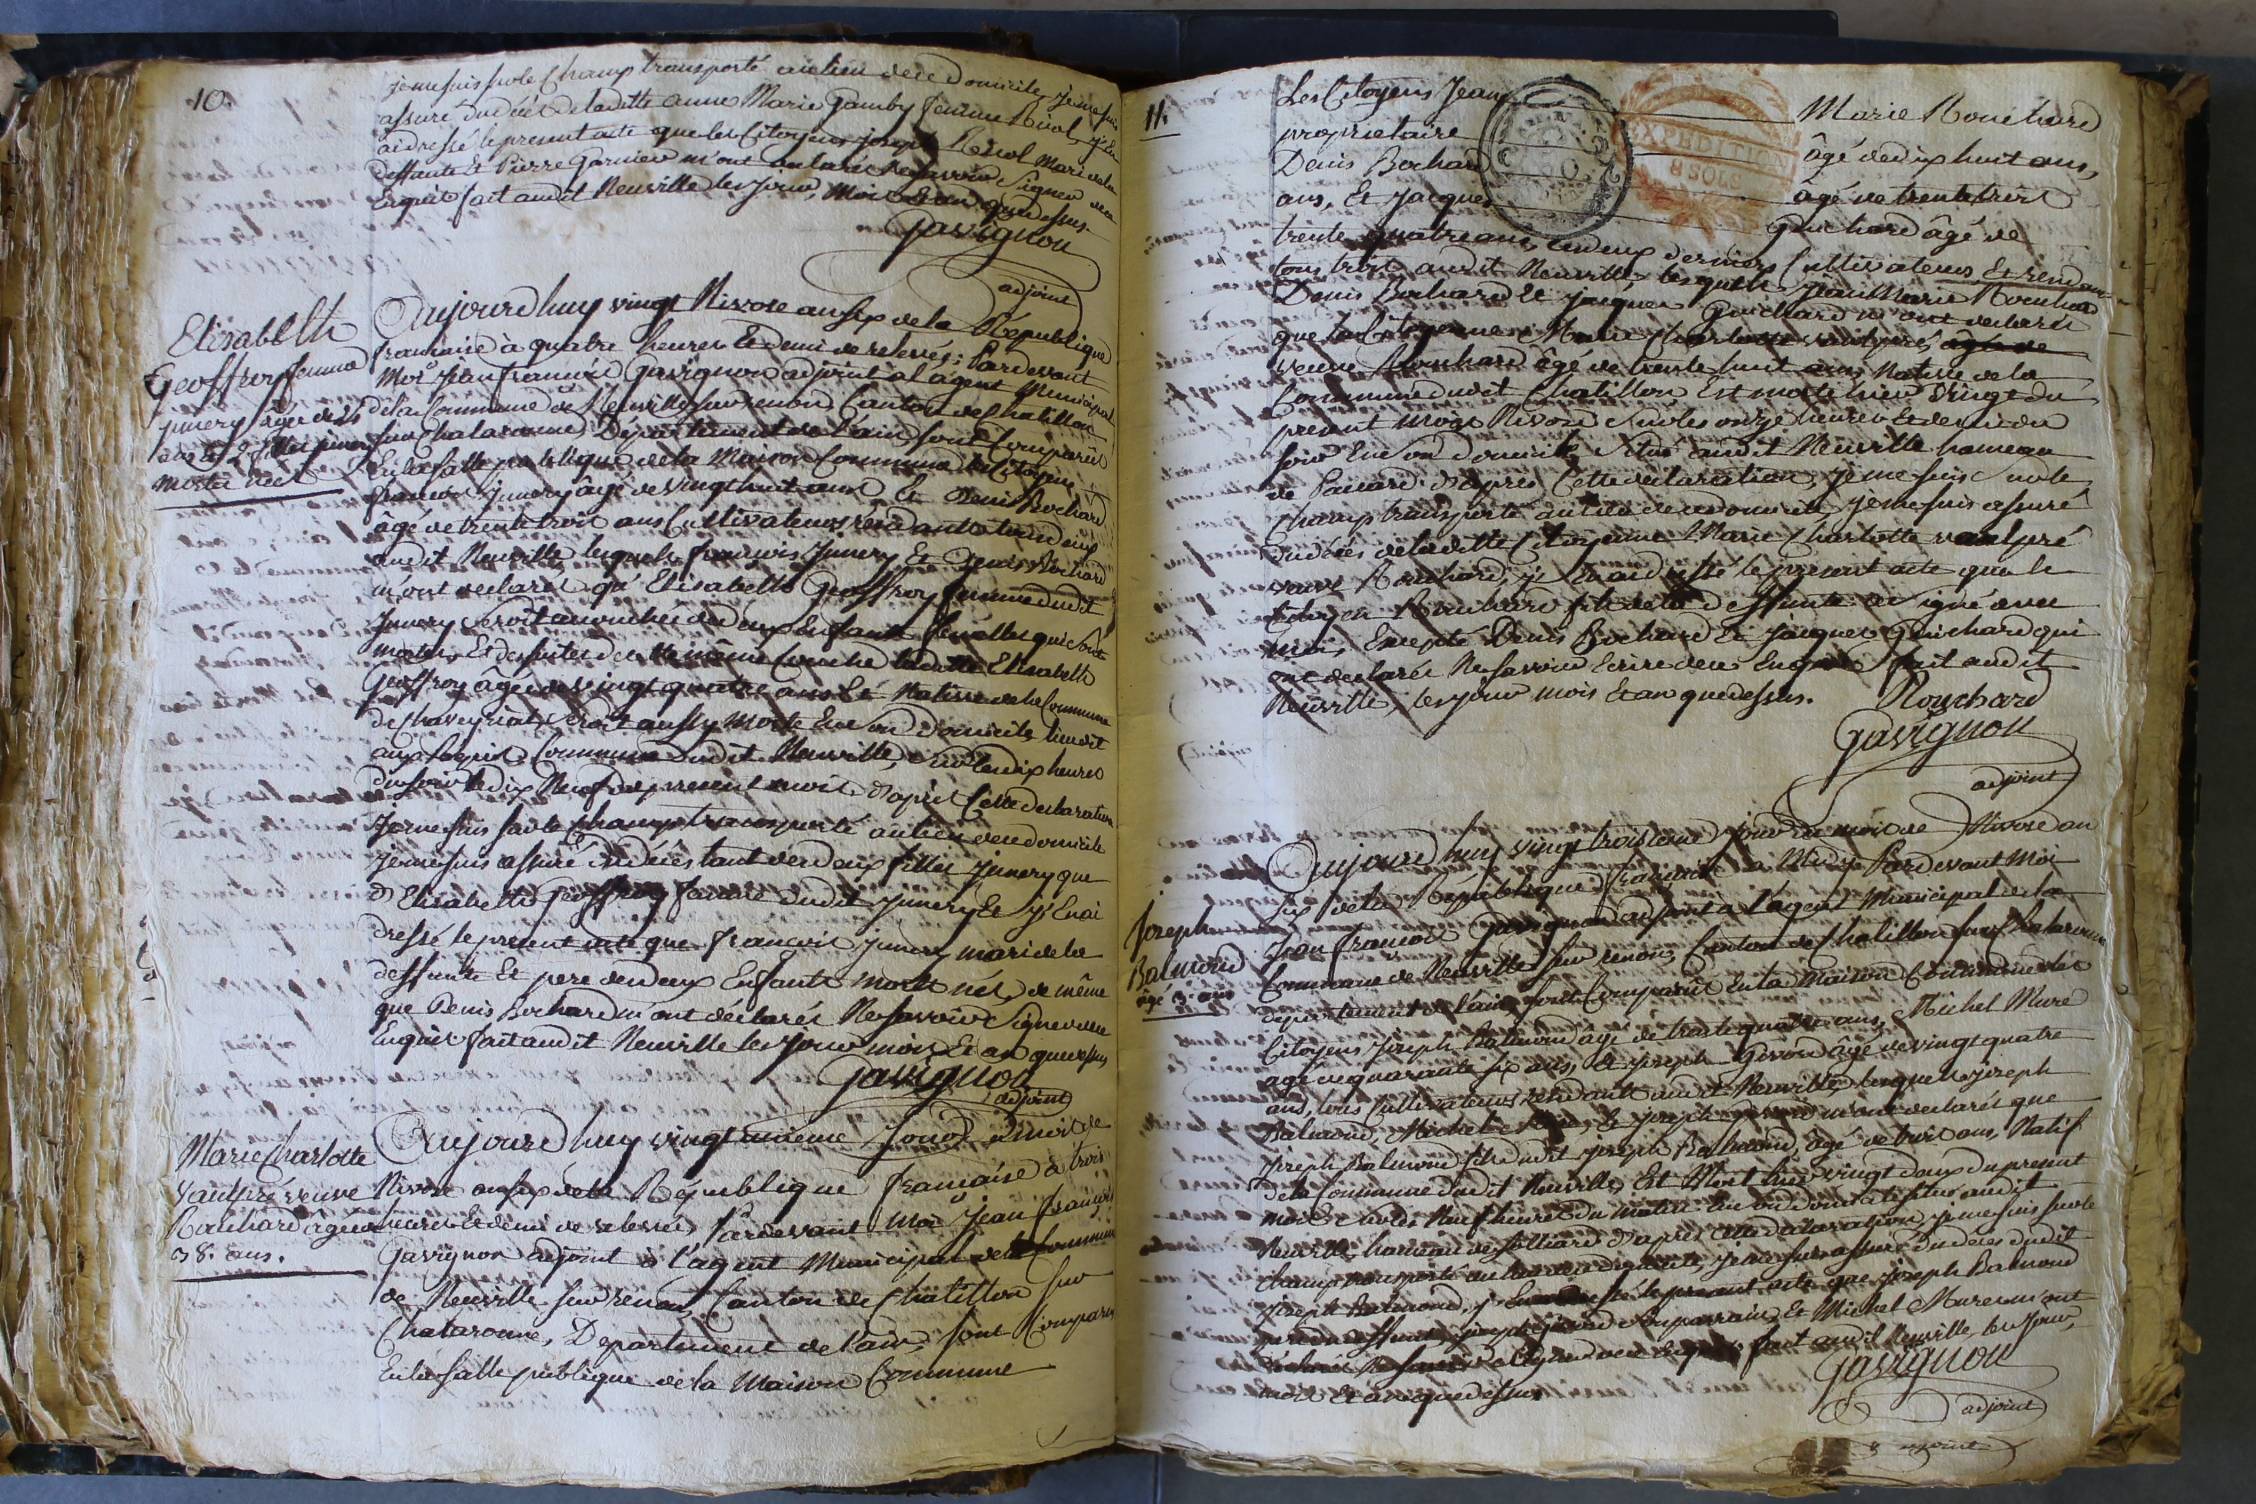 10.
je me suis sur le Champ transporté au lieu de ce domicile, je me suis
assuré du décès de laditte anne Marie Gamby femme Réol, j'en
ai dressé le present acte que les Citoyens joseph Réol Mari de la
deffunte Et Pierre Garnier m'ont déclaré Ne savoir Signer de ce
Enquit fait audit Neuville les jour, Mois Et an que dessus.
Gavignon
adjoint
Elisabeth
Geoffroy femme
jumery âgée de 24
ans et 2 filles jumery
mortes nées
Aujourd'huy vingt Nivose an six de la République
francaise à quatre heures Et demi de relevée; Pardevant
Moi Jean francois Gavignon adjoint a l'agent Municipal
de la Commune de Neuville sur renon, Canton de Chatillon
sur Chalaronne, Département de l'ain, sont Comparus
En la salle publique de la Maison Commune les Citoyens
françois jumery âgé de vingt huit ans Et Denis Bochard
âgé de trente trois ans Cultivateurs résidants tous deux
audit Neuville lesquels françois jumery Et Denis Bochard
m'ont declaré qu' Elisabeth Geoffroy femme dudit
Jumery seroit accouchée de deux Enfants femelles qui sont
mortes, Et des suites de cette même Couche laditte Elisabeth
Geoffroy âgée de vingt quatre ans Et Natisve de la Commune
de Chaveyriat, seroit aussy morte En son domicile, lieu dit
aux Commune dudit Neuville, sur les dix heures
du soir le dix Neuf du present mois, d'après Cette declaration
Je me suis sur le Champ transporté au lieu de ce domicile
je me suis assuré du décès tant des deux filles jumery que
d'Elisabeth Geoffroy femme dudit jumery Et j'y En ai
dressé le present acte que françois jumery mari de la
deffunte Et pere des deux Enfants morts nés, de même
que Denis Bochard m'ont déclarés Ne savoir Signer de ce
Enquis fait audit Neuville les jour mois Et an que dessus,
Gavignon
adjoint
Marie Charlotte
Vaulpré veuve
Rouchard âgée de
38. ans.
Aujourd'huy vingt unieme jour du mois de
Nivose an six de la République francaise à trois
heures Et demi de relevée, Pardevant Moi Jean françois
Gavignon adjoint à l'agent Municipal de la Commune
de Neuville sur renon, Canton de Chatillon sur
Chalaronne, Département de l'ain, sont Comparus
En la salle publique de la Maison Commune
11.
Les Citoyens Jean Marie Rouchard
proprietaire âgé de dix huit ans,
Denis Bochard âgé de trente trois
ans, Et Jacques Guichard âgé de
EXPEDITION
trente quatre ans, Ces deux derniers Cultivateurs Et residants
tous trois audit Neuville, lesquels Jean Marie Rouchard
Denis Bochard et jacques Guichard m'ont declarés
que la Citoyenne Marie Charlotte vaulpré, agée de
Veuve Rouchard âgé de trente huit ans Natisve de la
Commune dudit Chatillon Est morte hier vingt du
present mois Nivose sur les onze heures Et demie du
soir En son domicile situé audit Neuville hameau
de Panard. d'apres Cette declaration, je me suis sur le
Champ transporté au lieu de ce domicile, je me suis assuré
du décès de laditte Citoyenne Marie Charlotte vaulpré
veuve Rouchard, j'y En ai dressé le present acte que le
Citoyen Rouchard fils de la deffunte a signé avec
moi, Excepté Denis Bochard Et jacques Guichard qui
ont declarés Ne savoir Ecrire de ce Enquis fait audit
Neuville, les jour mois Et an que dessus.
Rouchard
Gavignon
adjoint
Joseph
Balmond
âgé 3. ans
Aujourd'huy vingt troisieme jour du mois de Nivose an
six de la République francaise a Midy Pardevant Moi
Jean françois Gavignon adjoint a l'agent Municipal de la
Commune de Neuville sur renon, Canton de Chatillon sur Chalaronne
département de l'ain, sont Comparus En la maison Commune les
Citoyens Joseph Balmond âgé de trente quatre ans, Michel Mure
âgé de quarante six ans, Et joseph Givord âgé de vingt quatre
ans, tous Cultivateurs residants audit Neuville, lesquels joseph
Balmond, Michel Mure Et joseph Givord m'ont declarés que
Joseph Balmond fils dudit joseph Balmond, âgé de trois ans, Natif
de la Commune dudit Neuville, Est Mort hier vingt deux du present
mois sur les Neuf heures du matin En son domicile situé audit
Neuville, hameau de d'apres Cette declaration, je me suis sur le
champ transporté au lieu de ce domicile, je me suis assuré du deces dudit
Joseph Balmond, j'y En ai dressé le present acte que joseph Balmond
pere du deffunt, joseph Givord son parrain, Et Michel Mure m'ont
déclaré Ne savoir Signer de ce Enquis fait audit Neuville, les jour,
mois Et an que dessus.
Gavignon
adjoint
adjoint